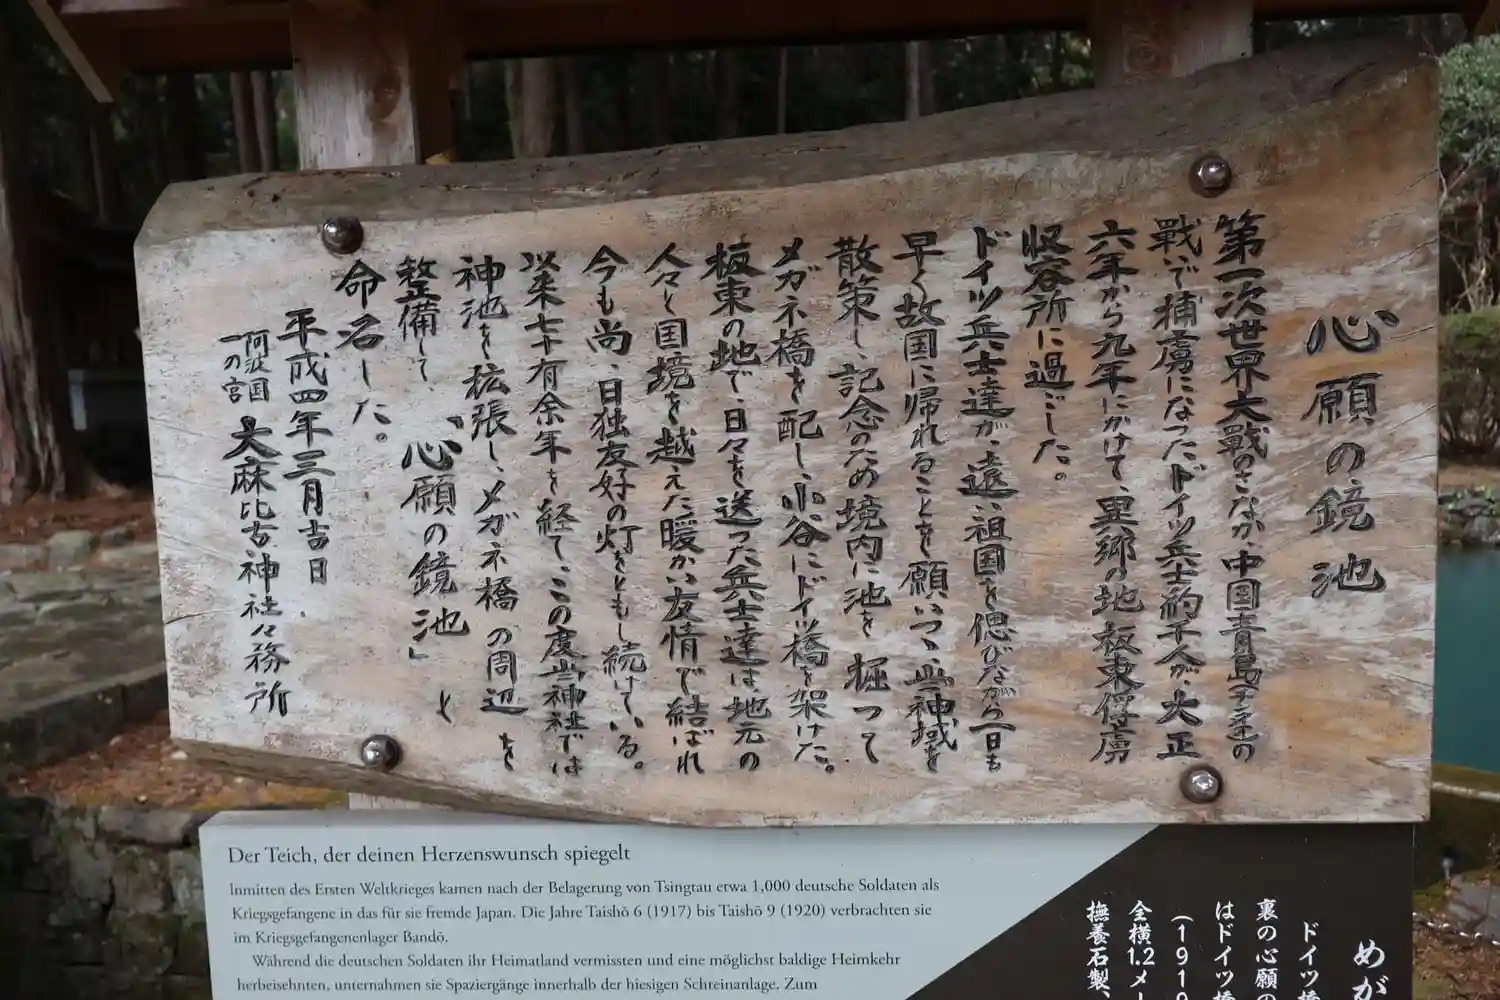 心願の鏡池
第一次世界大戦のさなか、中国青島(チンタオ)の
戦いで捕虜になったドイツ兵士約千人が、大正
六年から九年にかけて、異郷の地板東俘虜
収容所に過ごした。
ドイツ兵士達が、遠い祖国を偲びながら一日も
早く故国に帰れることを願いつつ、当神域を
散策し、記念のため境内に池を掘って
メガネ橋を配し、小谷にドイツ橋を架けた。
板東の地で、日々を送った兵士達は地元の
人々と国境を越えた暖かい友情で結ばれ
今も尚、日独友好の灯をともし続けている。
以来七十有余年を経て、この度当神社では
神池を拡張し、メガネ橋の周辺を
整備して、「心願の鏡池」と
命名した。
平成四年三月吉日
阿波国
一の宮
大麻比古神社々務所
Der Teich, der deinen Herzenswunsch spiegelt
Inmitten des Ersten Weltkrieges kamen nach der Belagerung von Tsingtau etwa 1,000 deutsche Soldaten als
Kriegsgefangene in das für sie fremde Japan. Die Jahre Taishō 6 (1917) bis Taishō 9 (1920) verbrachten sie
im Kriegsgefangenenlager Bandō.
Während die deutschen Soldaten ihr Heimatland vermissten und eine möglichst baldige Heimkehr
herbeisehnten, unternahmen sie Spaziergänge innerhalb der hiesigen Schreinanlage. Zum
めが
ドイツ橋
裏の心願の
はドイツ橋
(1919
全横1.2メー
撫養石製、